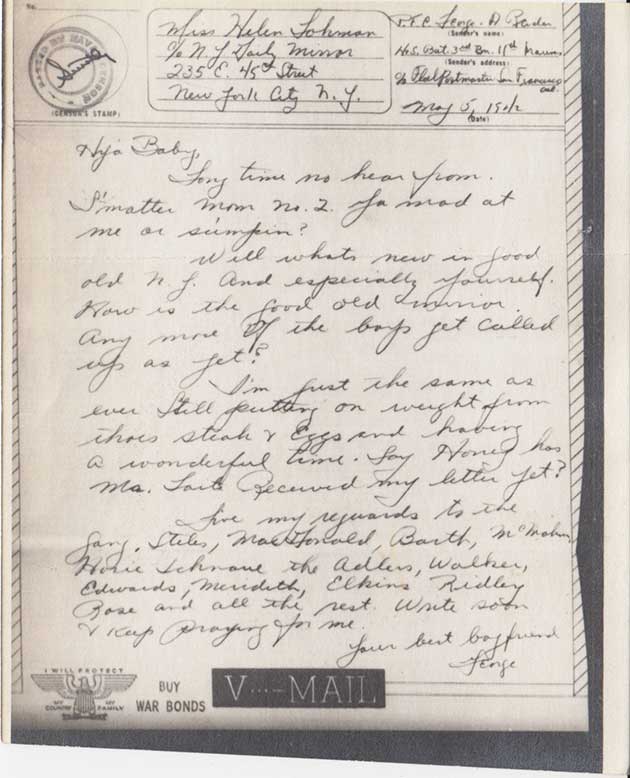 No.
PASSED BY NAVAL CENSOR
(CENSOR'S STAMP)
Miss Helen Lohman
c/o N.Y. Daily Mirror
235 E. 45th Street
New York City N.Y.
P.F.C. George A
(Sender's name)
H.S. Bat. 3rd Bn. 11th Marines
(Sender's address)
c/o Fleet Postmaster San Francisco
Cal.
May 5, 194
(Date)
Hya Baby,
Long time no hear from.
S'matter Mom No. 2. Ya mad at
me or sumpin?
Well whats new in good
old N.Y. And especially yourself.
How is the good old mirror.
Any more of the boys get called
up as yet?
I'm just the same as
ever Still putting on weight from
thoes steak & Eggs and having
a wonderful time. Say Honey has
Ma. Received my letter yet?
Give my reguards to the
gang. Stiles, MacDonald, Barth, McMahon
Schnaue the Adlers, Walker,
Edwards, Merideth, Elkins Ridley
Rose and all the rest. Write soon
& Keep Praying for me.
Your best boyfriend
George
I WILL PROTECT
MY COUNTRY MY FAMILY
BUY
WAR BONDS
V···—MAIL